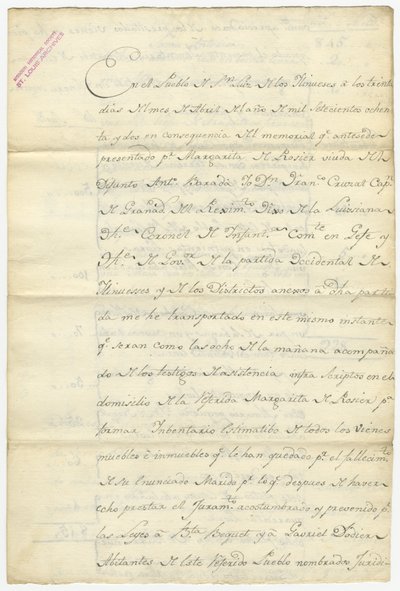 MISSOURI HISTORICAL SOCIETY
ST. LOUIS ARCHIVES
En el Pueblo de Sn Luiz de los Ilinueses à los treinta
dias del mes de Abril del año de mil setecientos ochen
ta y dos en consequencia del memorial qe antesede
presentado pr Margarita de Rosier viuda del
Difunto Anto Barada Yo Dn Franco Cruzat Capn
de Granads del Reximto Dixo de la Luisiana
The Coronel de Infanda Comte en Gefe y
The de Govor de la partida Occidental de
Ilinuesses y de los Districtos anexos à dha parti
da me he transportado en este mismo instante
qe seran como las ocho de la mañana acompaña
do de los testigos de asistencia infra scriptos en el
domisilio de la referida Margarita de Rosier pa
formar Inbentario Estimatibo de todos los vienes
muebles è inmuebles qe le han quedado pr el fallecimto
de su Enunciado Marido pr lo qe despues de haver
echo prestar el Juramto acostumbrado y prevenido pr
las Leyes à Bta Bequet y à Gavriel Dodier
Abitantes de este referido Pueblo nombrados Juridi-